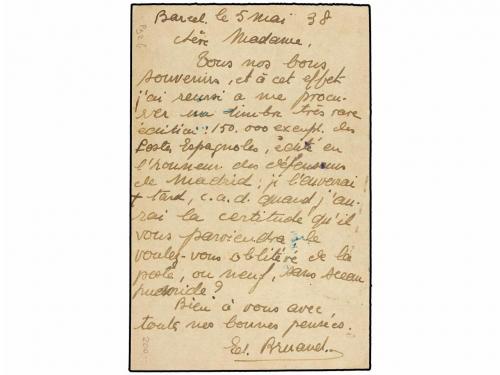 Barcel. le 5 mai 38
chère Madame,
Tous nos bons
souvenirs, et à cet effet
j'ai reussi a me procu-
rer un timbre très rare
édition: 150.000 exempl. des
Postes Espagnoles, édité en
l'honneur des défenseurs
de Madrid; je l'enverrai
+ tard, c.a.d. quand j'au-
rai la certitude qu'il
vous parviendra - le
voulez-vous oblitéré de la
poste, ou neuf, sans sceau
Bien à vous avec
toutes nos bonnes pensées.
Ed.
200